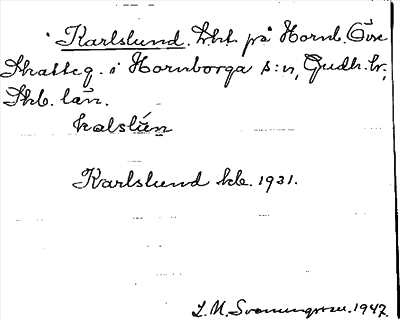 Karlslund. Lht. på Hornb. Övre
Skatteg. i Hornborga s:n, Gudh. hd;
Skb. län.
kalslún
Karlslund kb. 1931.
L. M. Svenungsson. 1947.